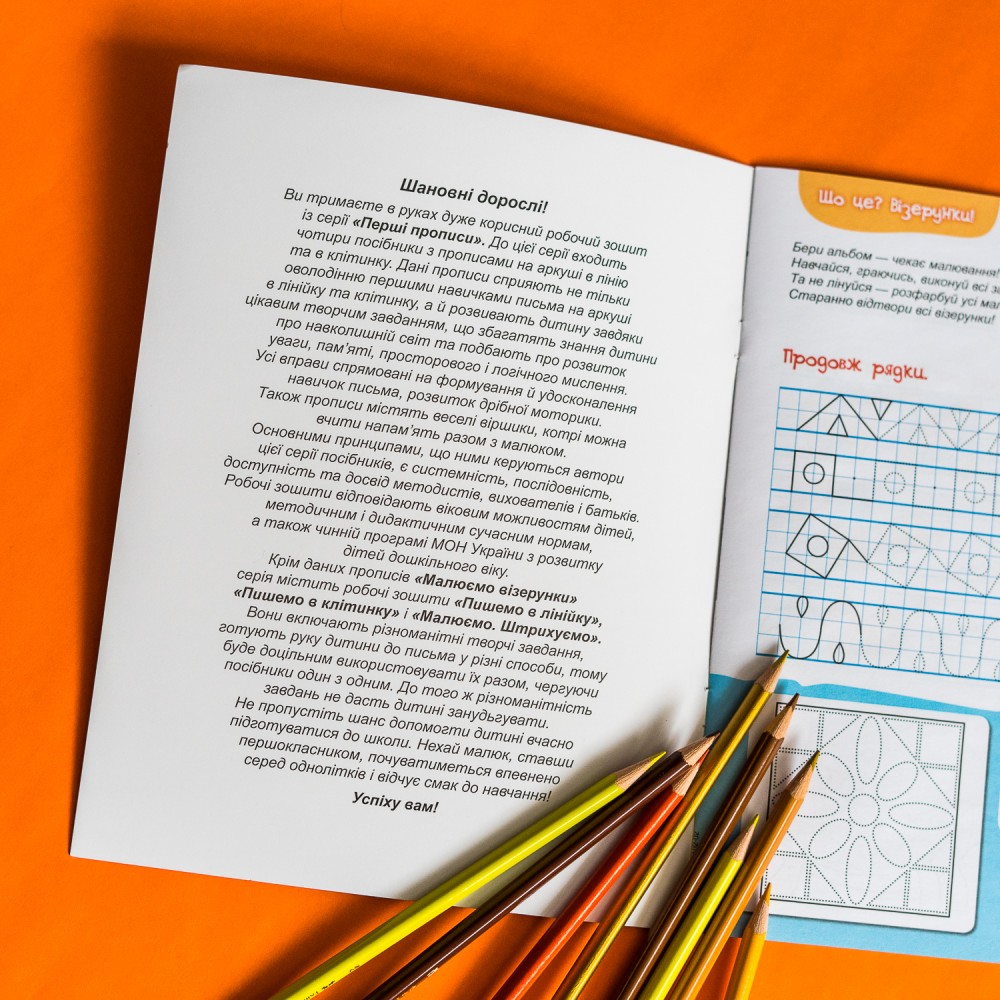 Шановні дорослі!
Ви тримаєте в руках дуже корисний робочий зошит
із серії «Перші прописи». До цієї серії входить
чотири посібники з прописами на аркуші в лінію
та в клітинку. Дані прописи сприяють не тільки
оволодінню першими навичками письма на аркуші
в лінійку та клітинку, а й розвивають дитину завдяки
цікавим творчим завданням, що збагатять знання дитини
про навколишній світ та подбають про розвиток
уваги, пам'яті, просторового і логічного мислення.
Усі вправи спрямовані на формування й удосконалення
навичок письма, розвиток дрібної моторики.
Також прописи містять веселі віршики, котрі можна
вчити напам'ять разом з малюком.
Основними принципами, що ними керуються автори
цієї серії посібників, є системність, послідовність,
доступність та досвід методистів, вихователів і батьків.
Робочі зошити відповідають віковим можливостям дітей,
методичним і дидактичним сучасним нормам,
а також чинній програмі МОН України з розвитку
дітей дошкільного віку.
Крім даних прописів «Малюємо візерунки»
серія містить робочі зошити «Пишемо в лінійку»,
«Пишемо в клітинку» і «Малюємо. Штрихуємо».
Вони включають різноманітні творчі завдання,
готують руку дитини до письма у різні способи, тому
буде доцільним використовувати їх разом, чергуючи
посібники один з одним. До того ж різноманітність
завдань не дасть дитині занудьгувати.
Не пропустіть шанс допомогти дитині вчасно
підготуватися до школи. Нехай малюк, ставши
першокласником, почуватиметься впевнено
серед однолітків і відчує смак до навчання!
Успіху вам!
Що це? Візерунки!
Бери альбом — чекає малювання!
Навчайся, граючись, виконуй всі
Та не лінуйся — розфарбуй усі
Старанно відтвори всі візерунки!
Продовж рядки.